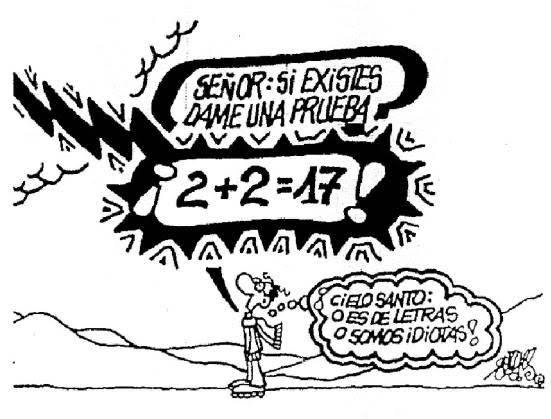 SEÑOR: SI EXISTES
DAME UNA PRUEBA
¡2+2=17!
¡CIELO SANTO:
O ES DE LETRAS
O SOMOS IDIOTAS!